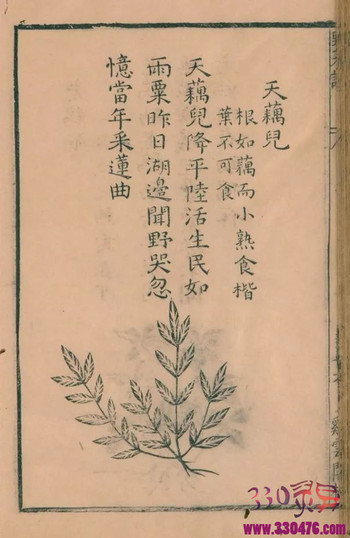 天藕兒
根如藕而小熟食楷
葉不可食
天藕兒降平陸活生民如
雨粟昨日湖邊聞野哭忽
憶當年采蓮曲
330
www.330476.com